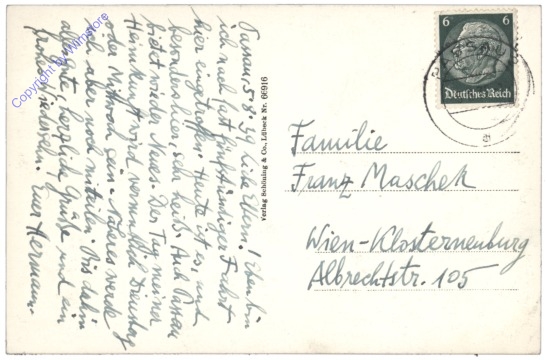 Passau, 5.8.39 Liebe Eltern! Eben bin
ich nach fast fünfstündiger Fahrt
hier eingetroffen. Heute ist es, und
besonders hier, sehr heiß. Aus Passau
nicht wieder Neues. Der Tag meiner
Heimkunft wird vermutlich Dienstag
oder Mittwoch sein. Näheres werde
ich aber noch mitteilen. Bis dahin
alles Gute, herzliche Grüße und ein
frohes Wiedersehn. Euer Hermann.
Verlag Schöning & Co., Lübeck Nr. 66916
6 6
Deutsches Reich
Familie
Franz Maschek
Wien-Klosterneuburg
Albrechtstr. 105
Copyright by Wimstore